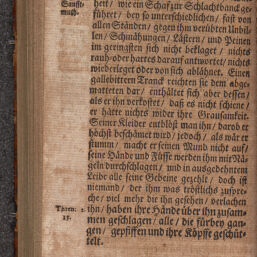 Sanfft-
muth.
heit / wie ein Schaf zur Schlachtbanck ge-
führet / bey so unterschiedlichen / fast von
allen Ständen / gegen ihm verübten Unbil-
len / Schmähungen / Lästern / und Peinen
im geringsten sich nicht beklaget / nichts
rauh oder hartes darauf antwortet / nichts
wiederleget oder von sich ablähnet. Einen
gallebittern Tranck reichten sie dem abge-
matteten dar / enthältet sich aber dessen /
als er ihn verkostet / daß es nicht schiene /
er hätte nichts wider ihre Grausamkeit.
Seiner Kleider entblöst man ihn / darob er
höchst beschämet wird / jedoch / als wär er
stumm / macht er seinen Mund nicht auf /
seine Hände und Füsse werden ihm mit Nä-
geln durchschlagen / und in ausgedehntem
Leibe alle seine Gebeine gezehlt / doch ist
niemand / der ihm was tröstliches zuspre-
che / viel mehr die ihn gesehen / verlachen
Thren. 2.
15.
ihn / haben ihre Hände über ihn zusam-
men geschlagen / alle / die fürbey gan-
gen / gepfiffen und ihre Köpffe geschüt-
telt.